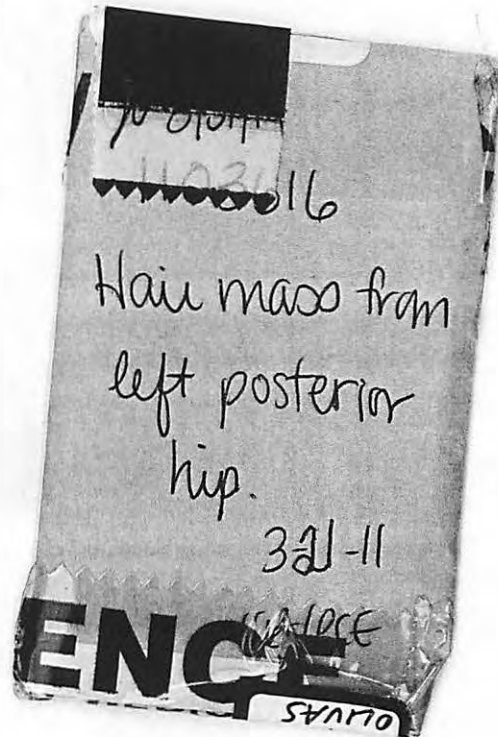 1103616
Hair mass from
left posterior
hip.
3-21-11
ENCE
OLIVAS